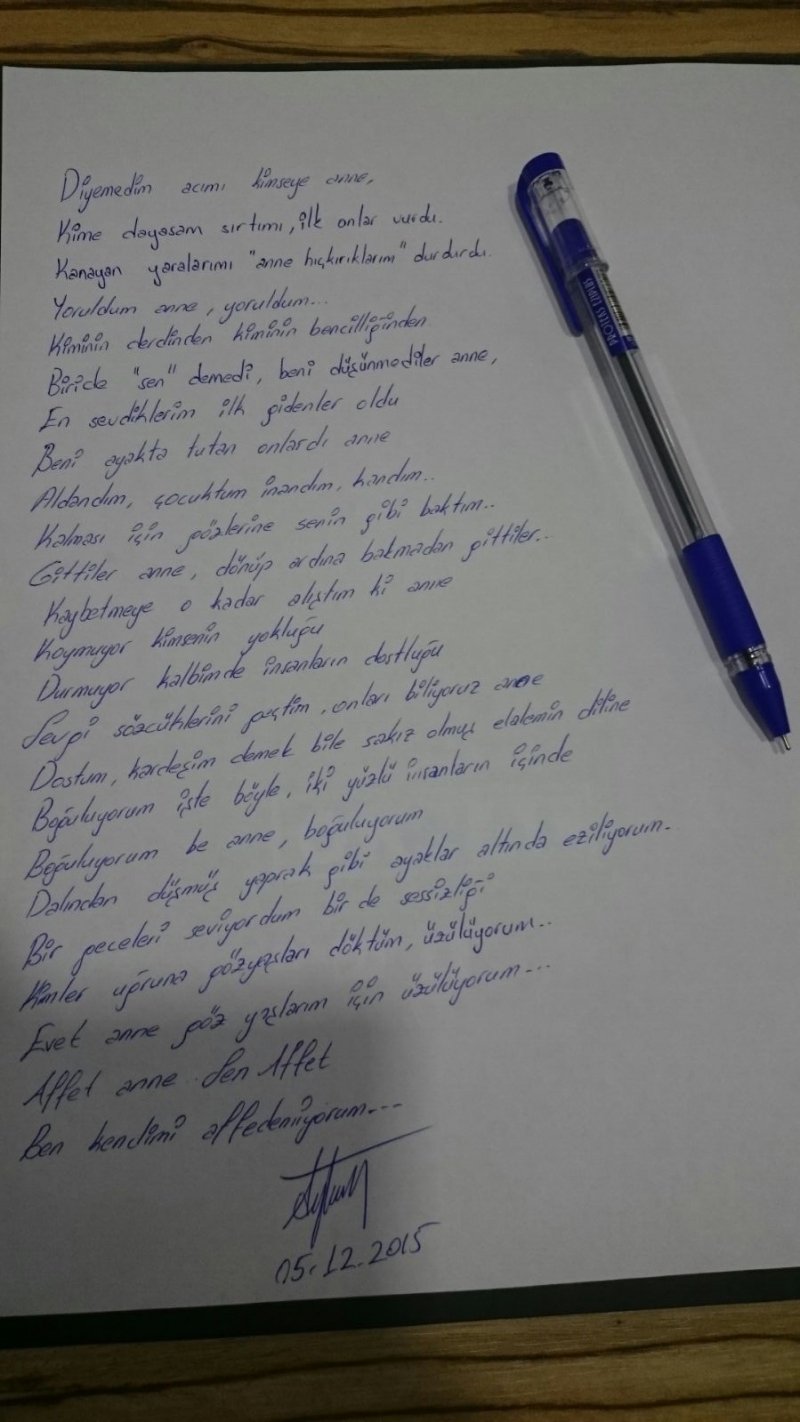 Diyemedim acımı kimseye anne,
Kime dayasam sırtımı, ilk onlar vurdu.
Kanayan yaralarımı "anne hıçkırıklarım" durdurdu.
Yoruldum anne, yoruldum...
Kiminin derdinden kiminin bencilliğinden
Biride "sen" demedi, beni düşünmediler anne,
En sevdiklerim ilk gidenler oldu
Beni ayakta tutan onlardı anne
Aldandım, çocuktum inandım, kandım..
Kalması için gözlerine senin gibi baktım..
Gittiler anne, dönüp ardına bakmadan gittiler..
Kaybetmeye o kadar alıştım ki anne
Koymuyor kimsenin yokluğu
Durmuyor kalbimde insanların dostluğu
Sevgi sözcüklerini geçtim, onları biliyoruz anne
Dostum, kardeşim demek bile sakız olmuş elalemin diline
Boğuluyorum işte böyle, iki yüzlü insanların içinde
Boğuluyorum be anne, boğuluyorum
Dalından düşmüş yaprak gibi ayaklar altında eziliyorum.
Bir geceleri seviyordum bir de sessizliği
Kimler uğruna gözyaşları döktüm, üzülüyorum..
Evet anne göz yaşlarım için üzülüyorum...
Affet anne Sen Affet
Ben kendimi affedemiyorum...
05.12.2015